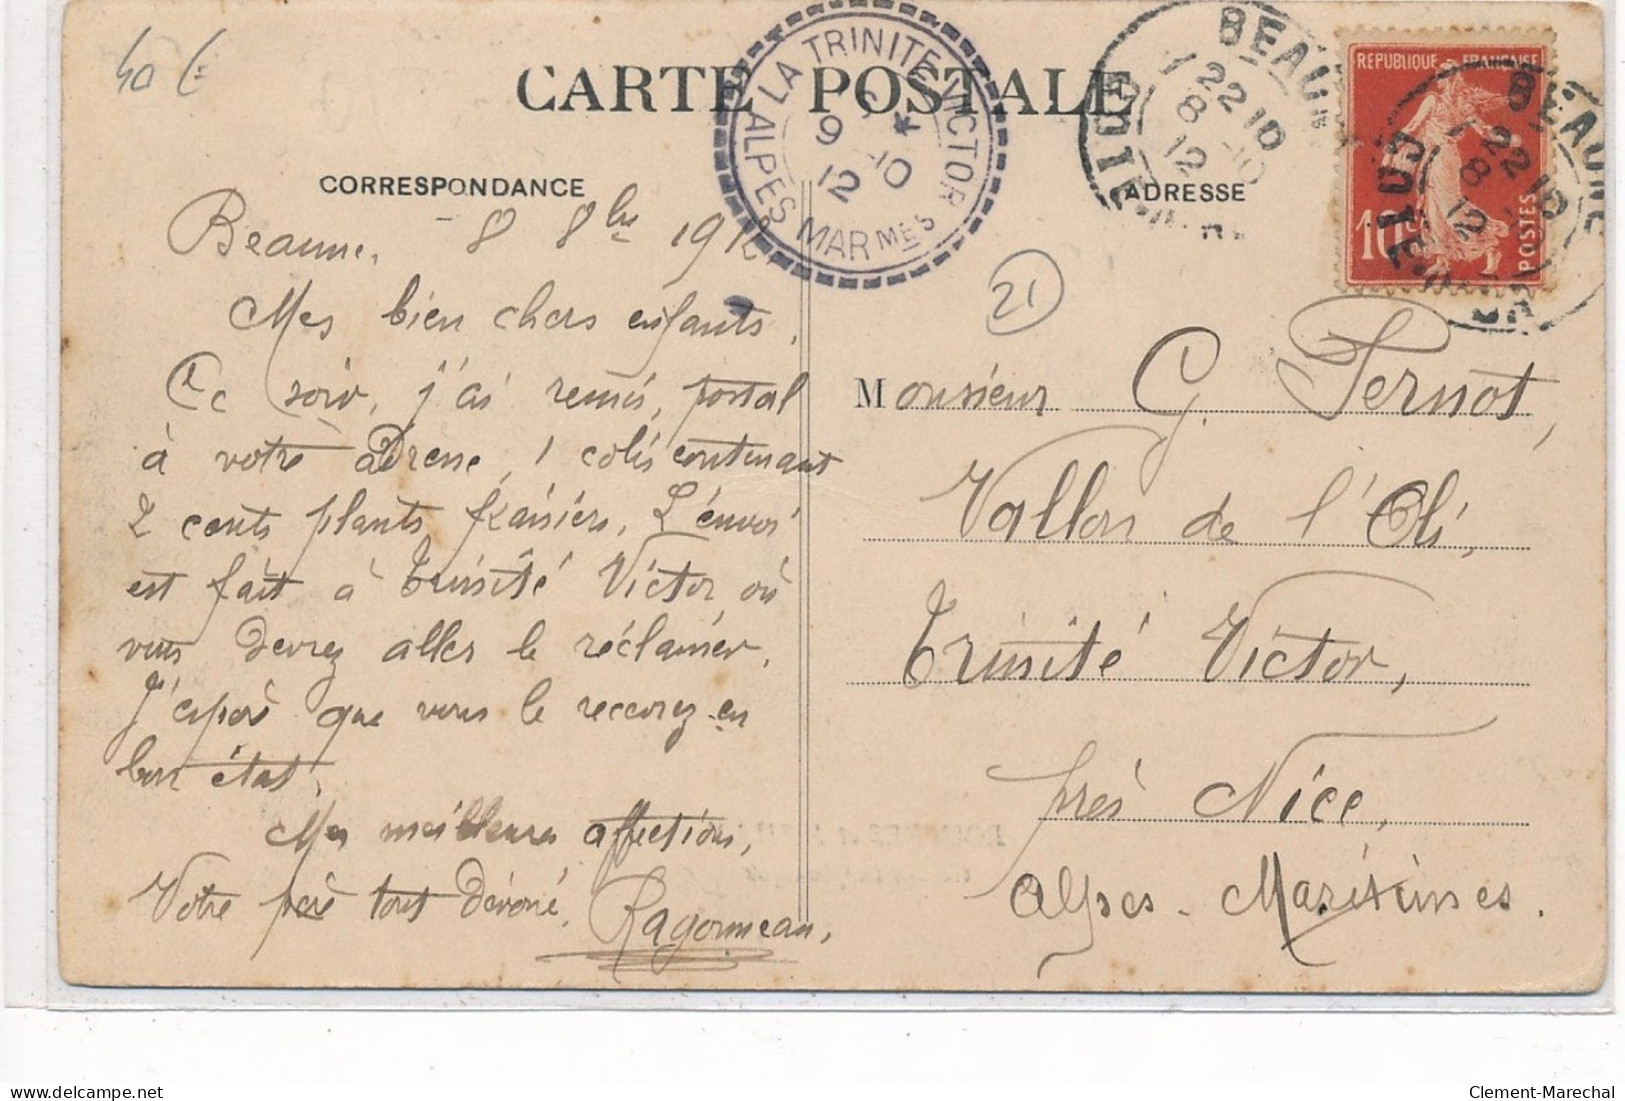 40 €
CARTE POSTALE
LA TRINITE-VICTOR
9 -10
12
ALPES MARMES
BEAUNE
22 10
8 -10
12
RÉPUBLIQUE FRANÇAISE
10c
POSTES
BEAUNE
22 10
8
12
CORRESPONDANCE
ADRESSE
21
Beaune, - 8 8bre 1912
Mes bien chers enfants,
Ce soir, j'ai remis, postal
à votre adresse, 1 colis contenant
2 cents plants fraisiers. L'envoi
est fait à Trinité Victor, où
vous devrez aller le réclamer.
J'espère que vous le recevrez en
bon état.
Mes meilleures affections,
Votre père tout dévoué,
Ragonneau,
Monsieur G. Pernot,
Vallon de l'Oli,
Trinité Victor,
près Nice,
Alpes-Maritimes.
Clement-Marechal